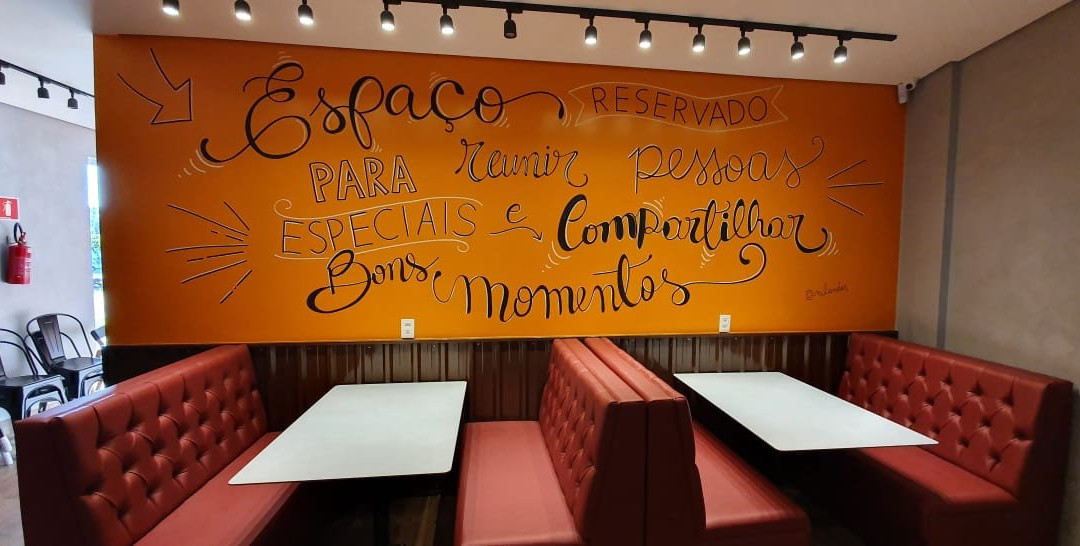 Espaço RESERVADO
PARA reunir pessoas
ESPECIAIS e Compartilhar
Bons momentos